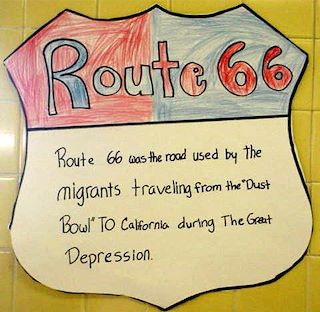 Route 66
Route 66 was the road used by the
migrants traveling from the "Dust
Bowl" TO California during The Great
Depression.